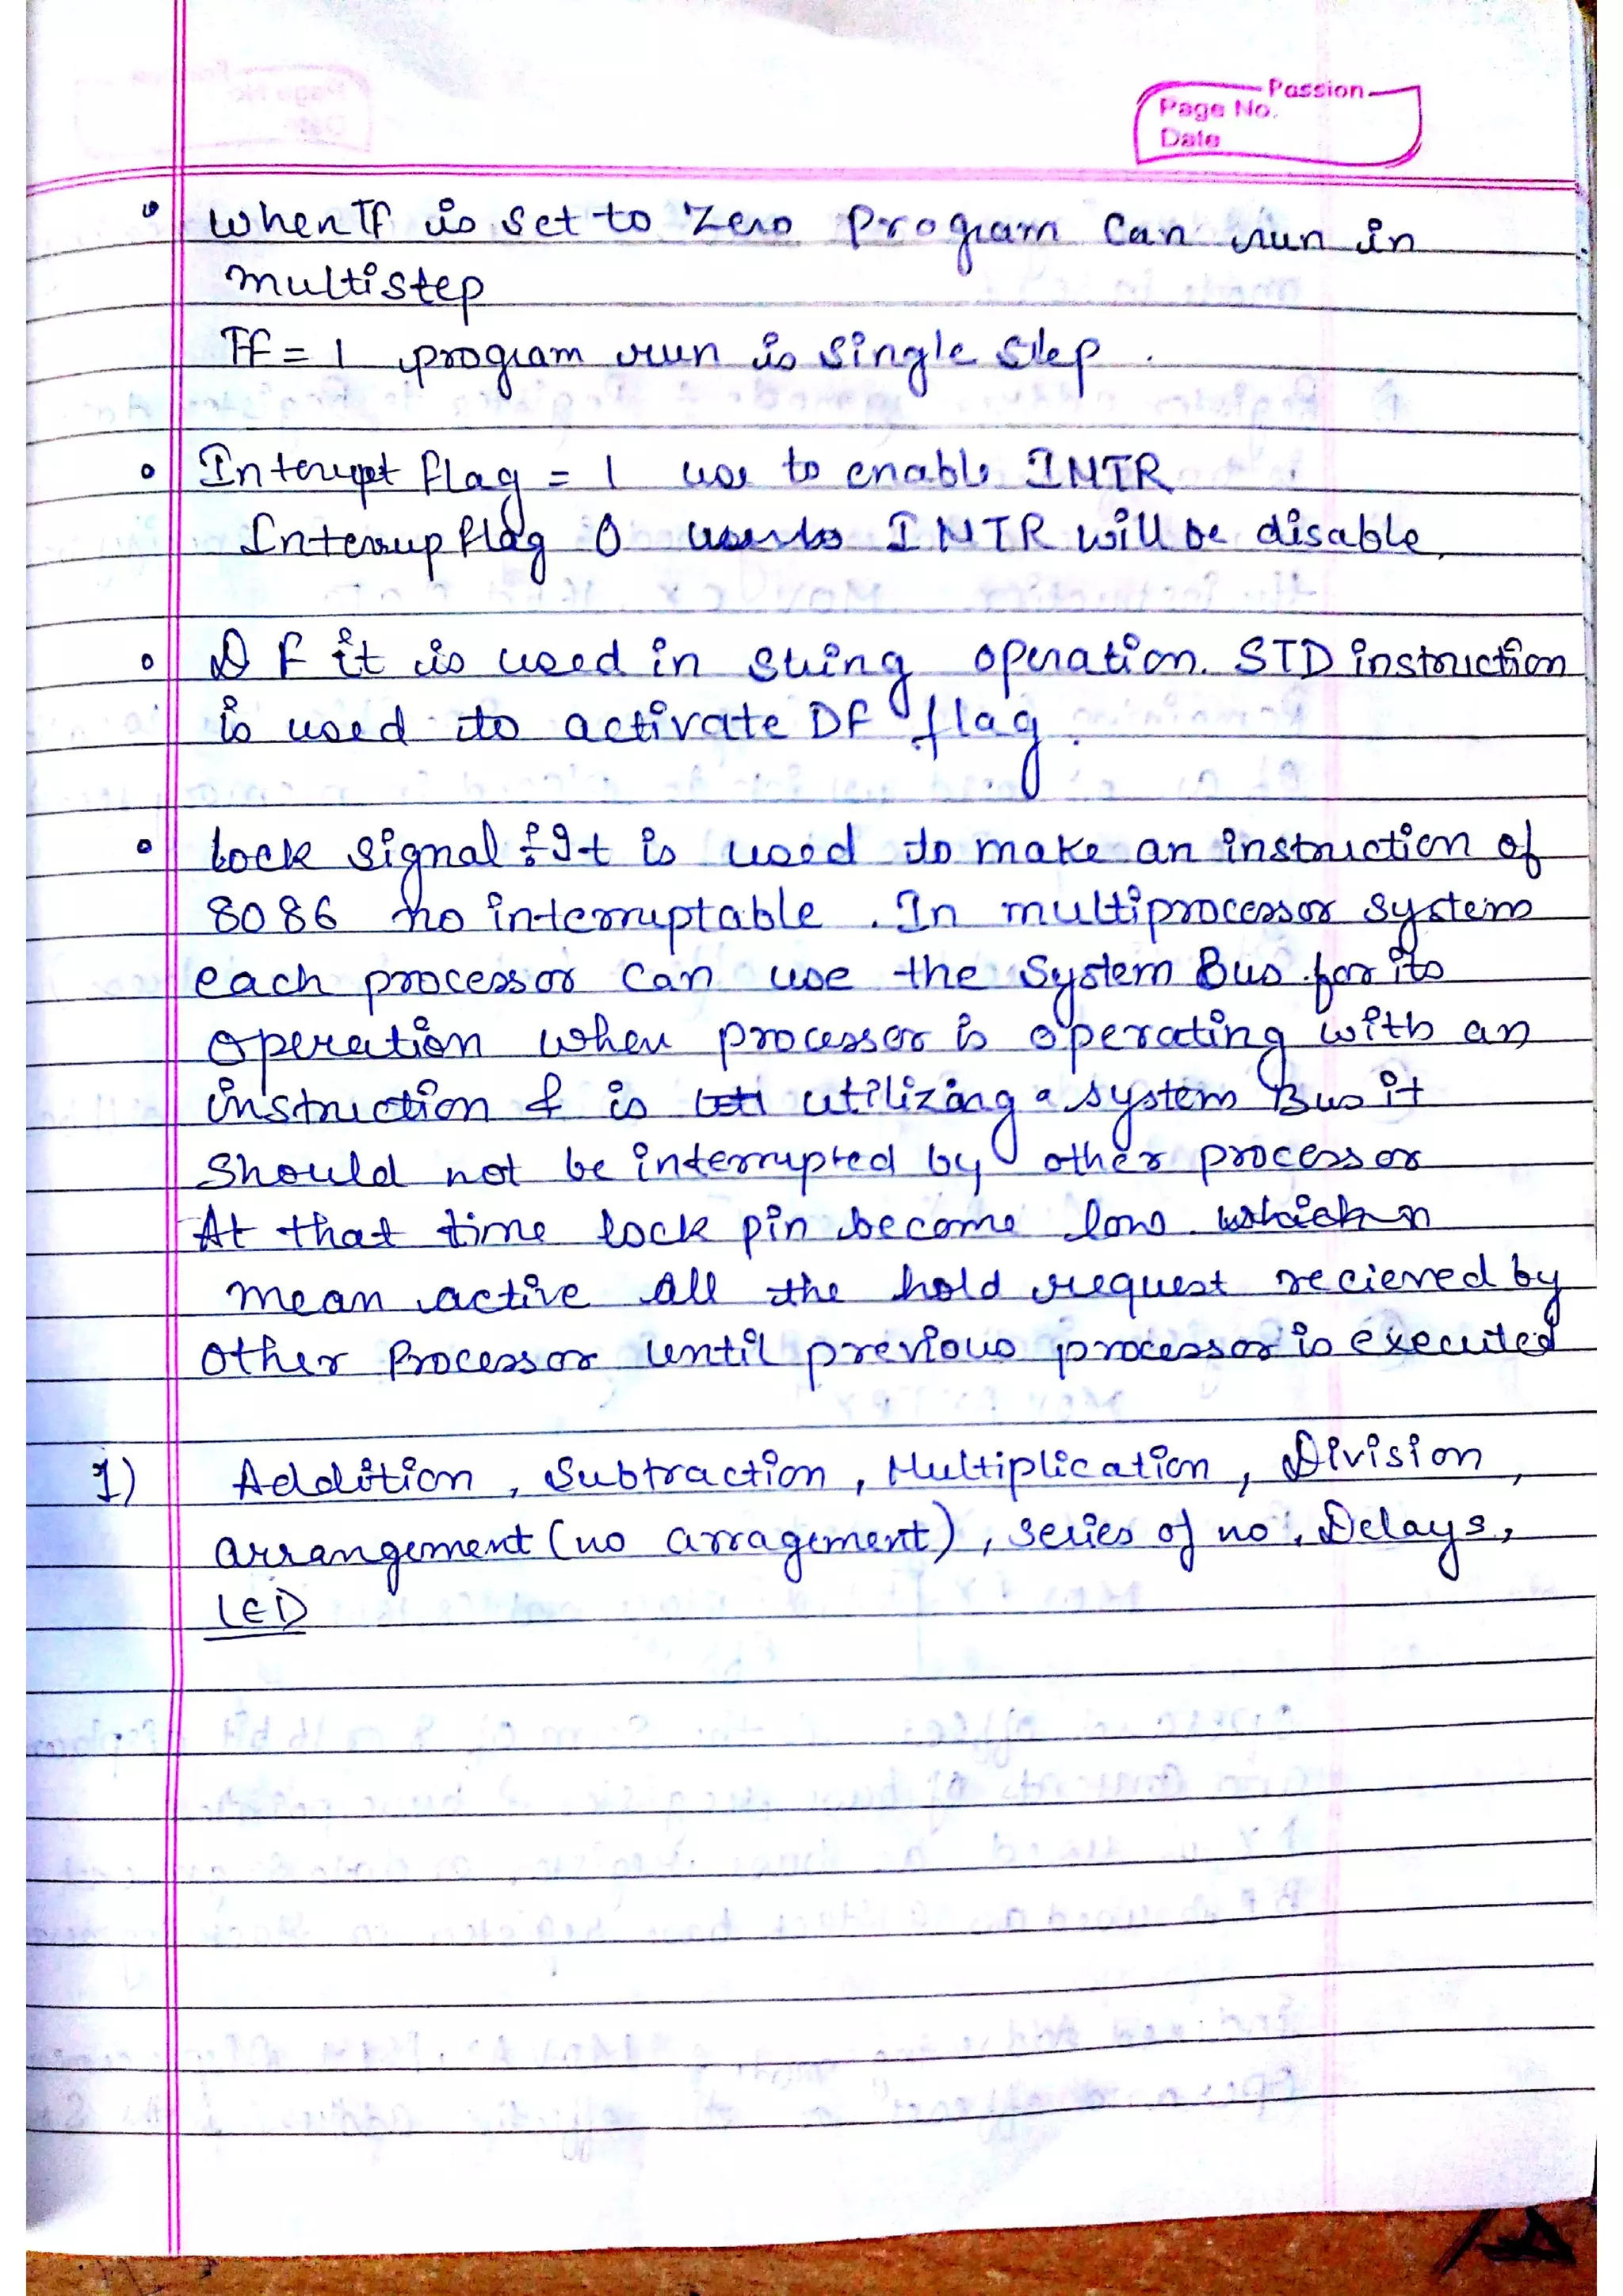 Passion
Page No.
Date
When TF is set to Zero Program Can run in
multistep
TF = 1 program run is Single Step.
Interupt flag = 1 use to enable INTR
Interrup flag 0 INTR will be disable.
DF it is used in string operation. STD instruction
is used to activate DF flag.
Lock signal : It is used to make an instruction of
8086 no interruptable. In multiprocessor system
each processor can use the System Bus for its
operation when processor is operating with an
instruction & is utilizing a system Bus it
Should not be interrupted by other processor
At that time lock pin become low which
mean active all the hold request recieved by
other Processor until previous processor is executed
1) Addition, Subtraction, Multiplication, Division,
arrangement (no arragement), series of no. Delays,
LED